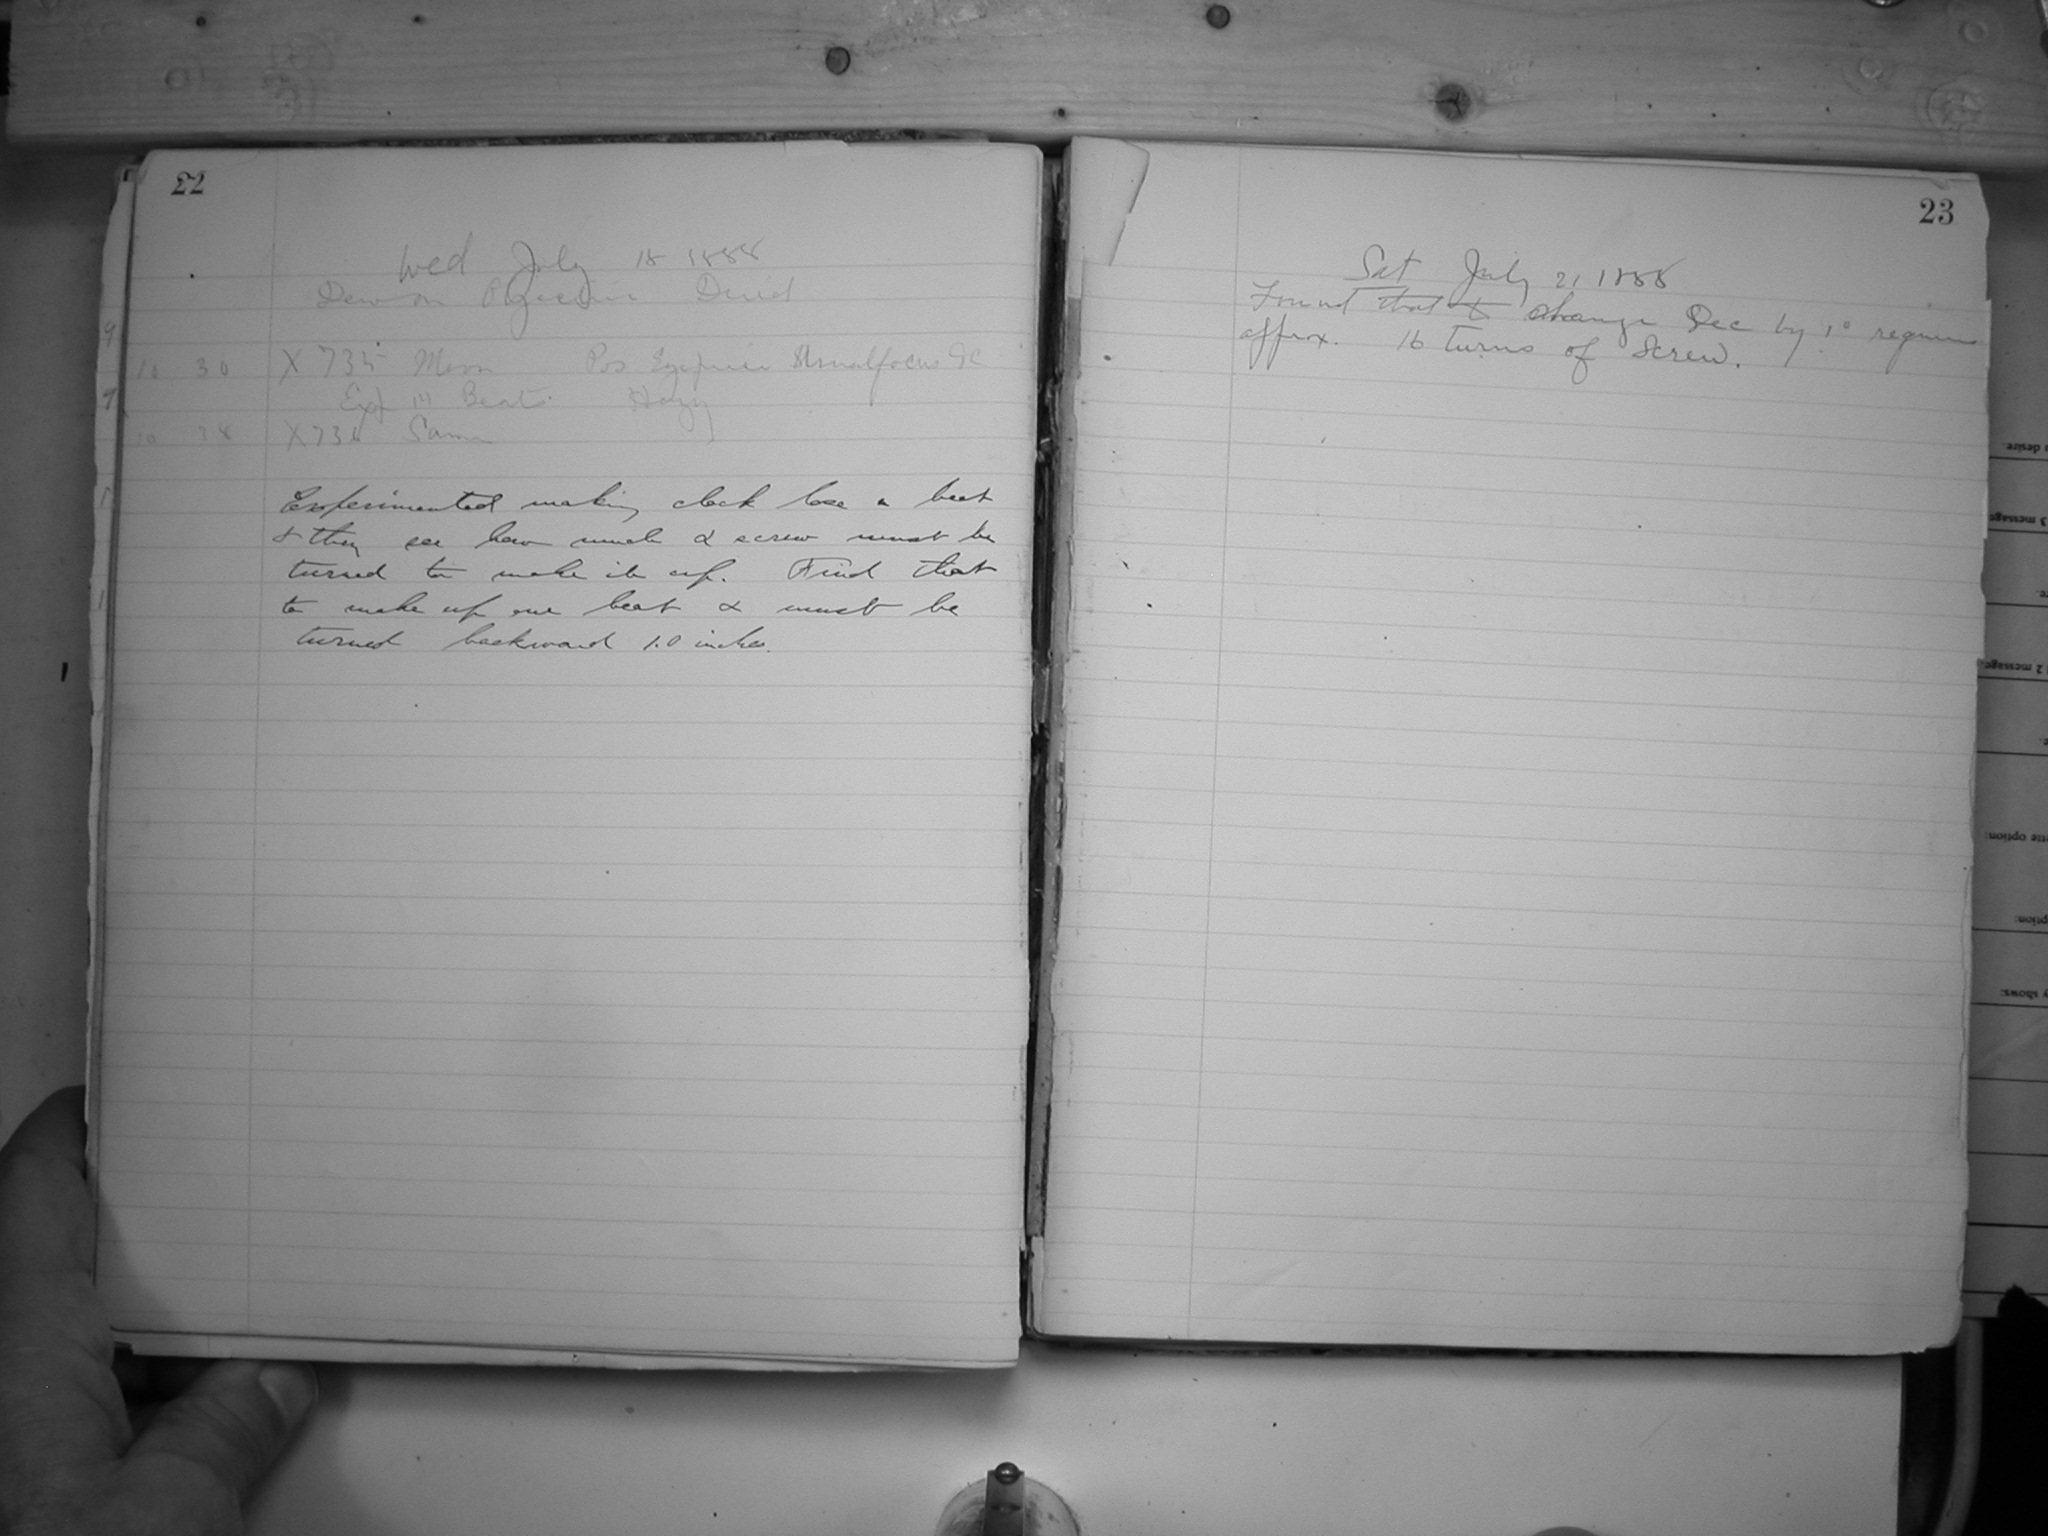 22
Wed July 18 1888
10 30 X 735 Moon Pos Eyepiece focus
Exp 14 Beats. Hazy
10 38 X736 Same
Experimented making clock lose a beat
& then see how much α screw must be
turned to make it up. Find that
to make up one beat α must be
turned backward 1.0 inches.
23
Sat July 21 1888
Found that to change Dec by 1° requires
approx. 16 turns of Screw.
desire.
3 message
2 message
option:
shows: